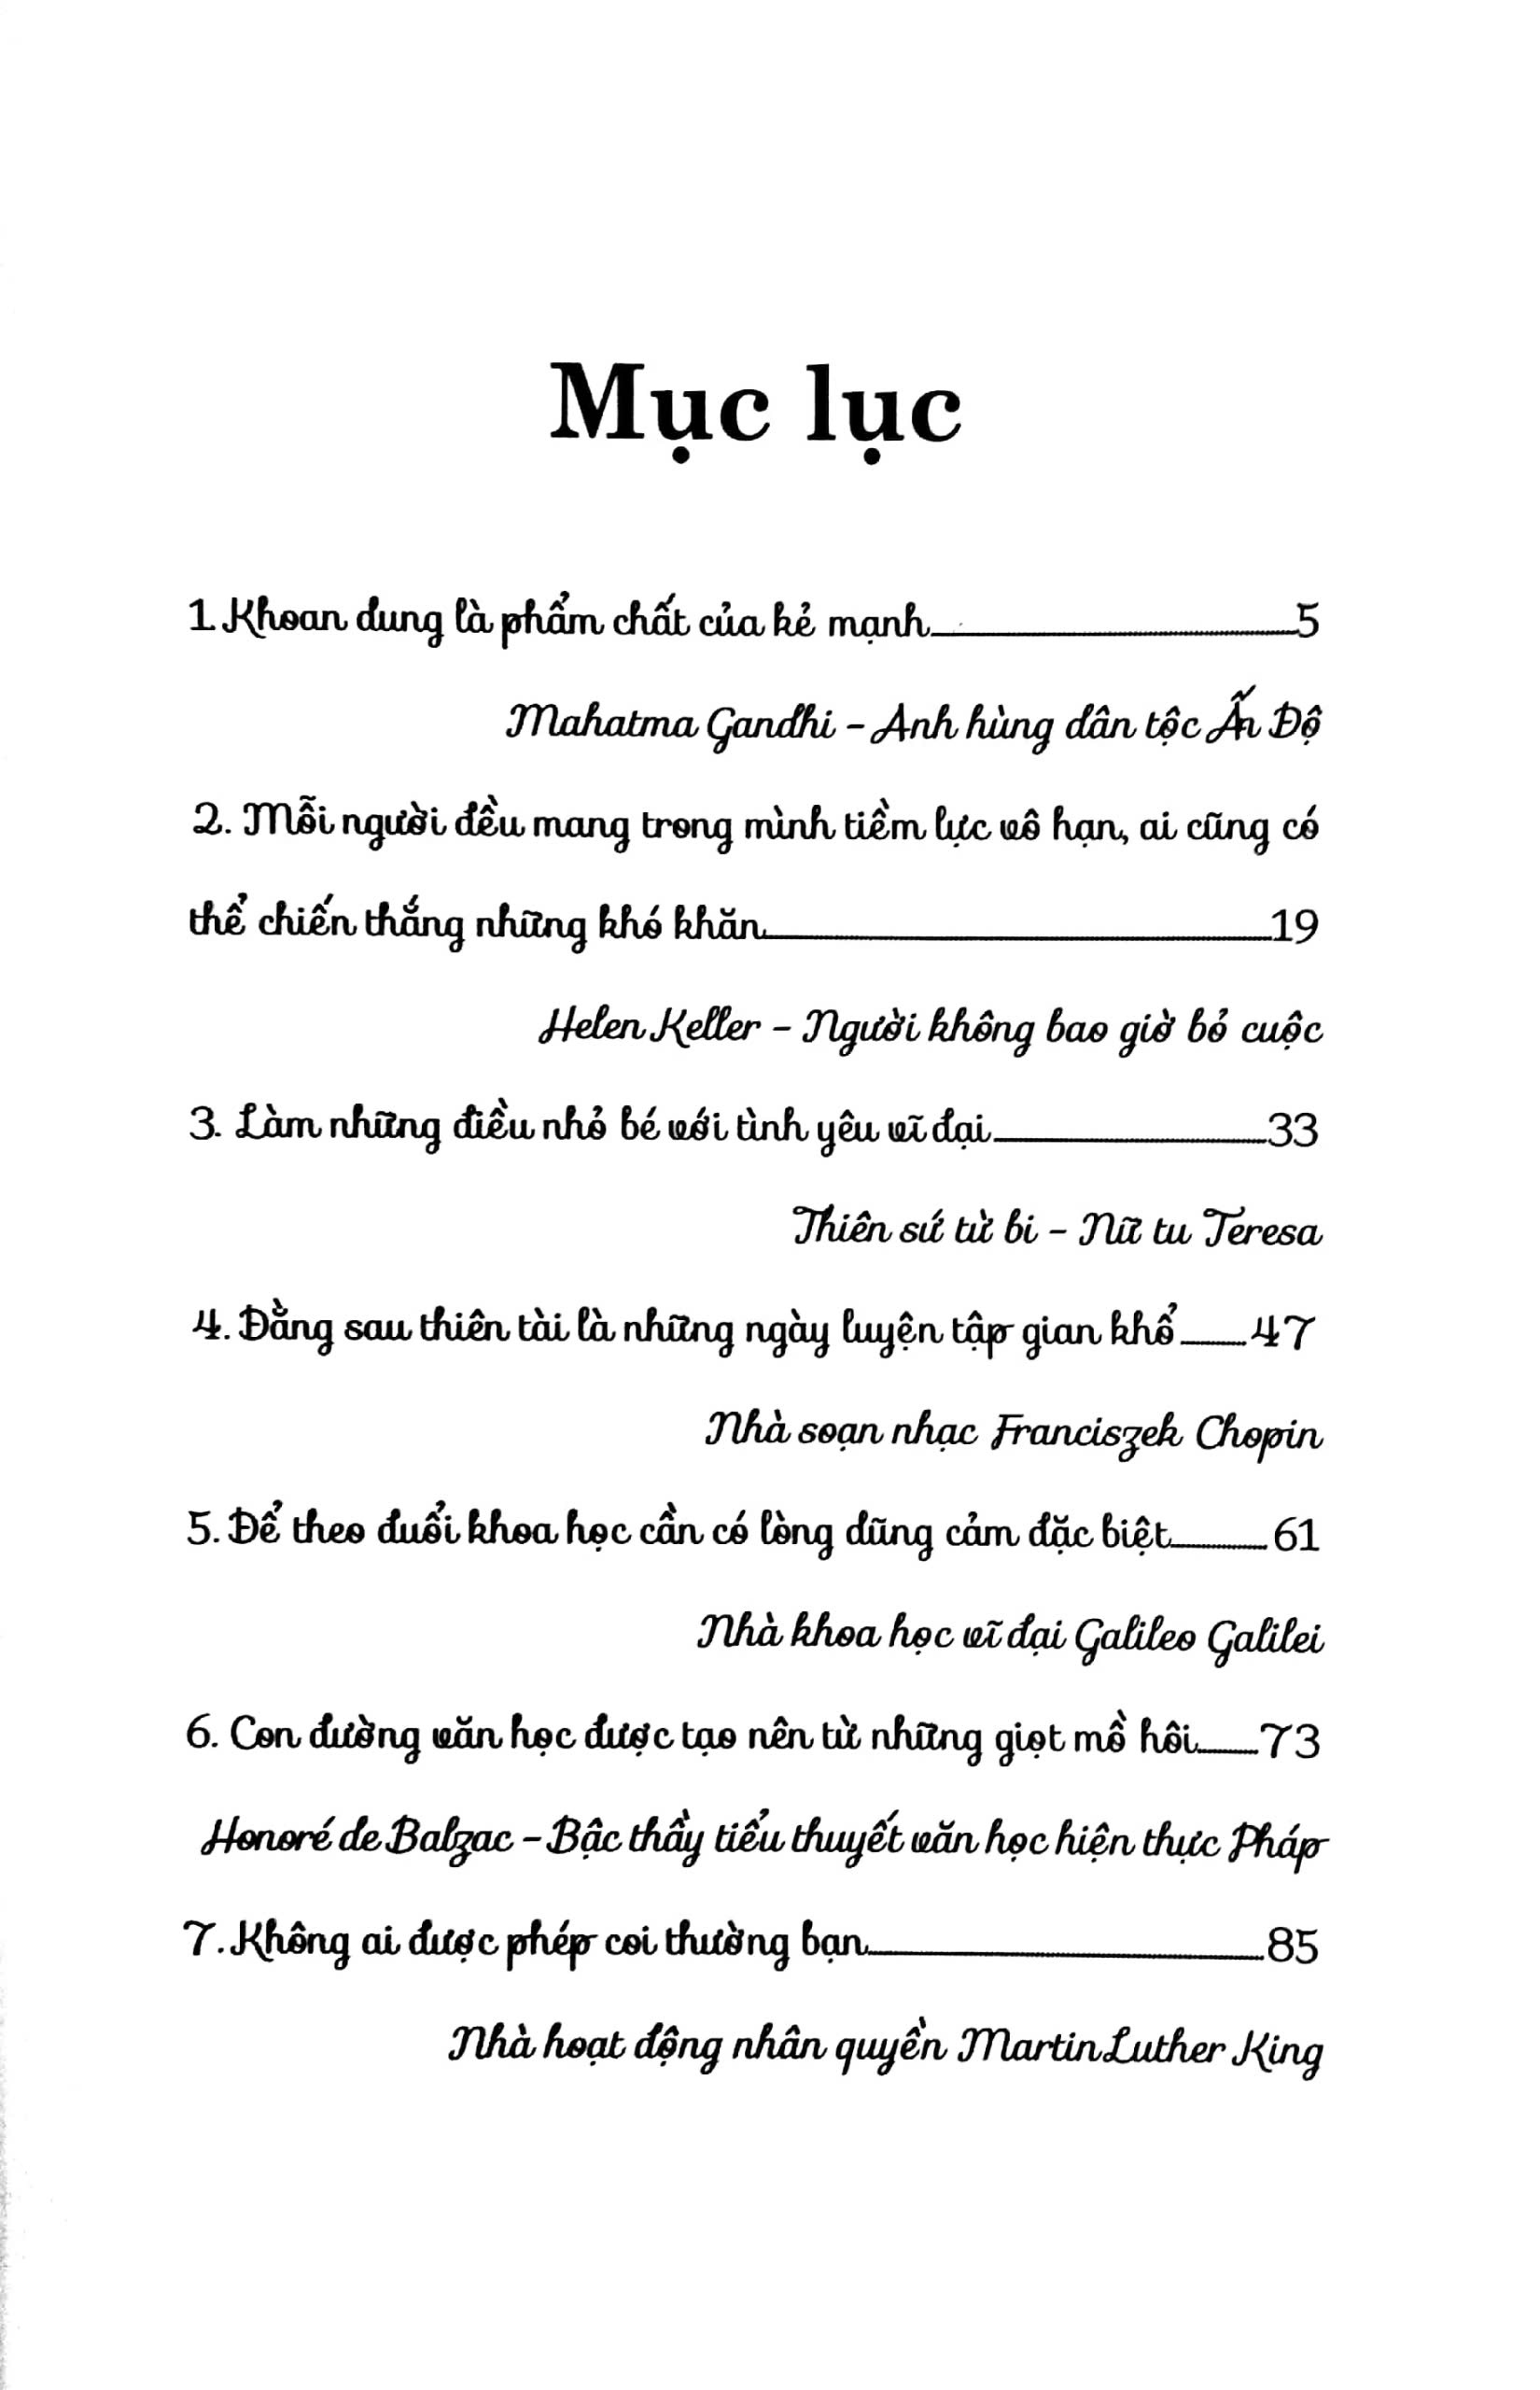 Mục lục
1. Khoan dung là phẩm chất của kẻ mạnh 5
Mahatma Gandhi – Anh hùng dân tộc Ấn Độ
2. Mỗi người đều mang trong mình tiềm lực vô hạn, ai cũng có
thể chiến thắng những khó khăn 19
Helen Keller – Người không bao giờ bỏ cuộc
3. Làm những điều nhỏ bé với tình yêu vĩ đại 33
Thiên sứ từ bi – Nữ tu Teresa
4. Đằng sau thiên tài là những ngày luyện tập gian khổ 47
Nhà soạn nhạc Franciszek Chopin
5. Để theo đuổi khoa học cần có lòng dũng cảm đặc biệt 61
Nhà khoa học vĩ đại Galileo Galilei
6. Con đường văn học được tạo nên từ những giọt mồ hôi 73
Honoré de Balzac – Bậc thầy tiểu thuyết văn học hiện thực Pháp
7. Không ai được phép coi thường bạn 85
Nhà hoạt động nhân quyền Martin Luther King